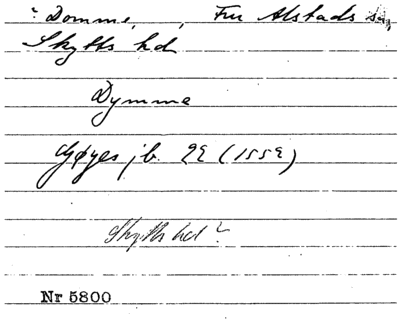 ? Domme, , Fru Alstads sn,
Skytts hd
Dymme
Gøyes jb. 92 (1552)
Skytts hd?
Nr 5800